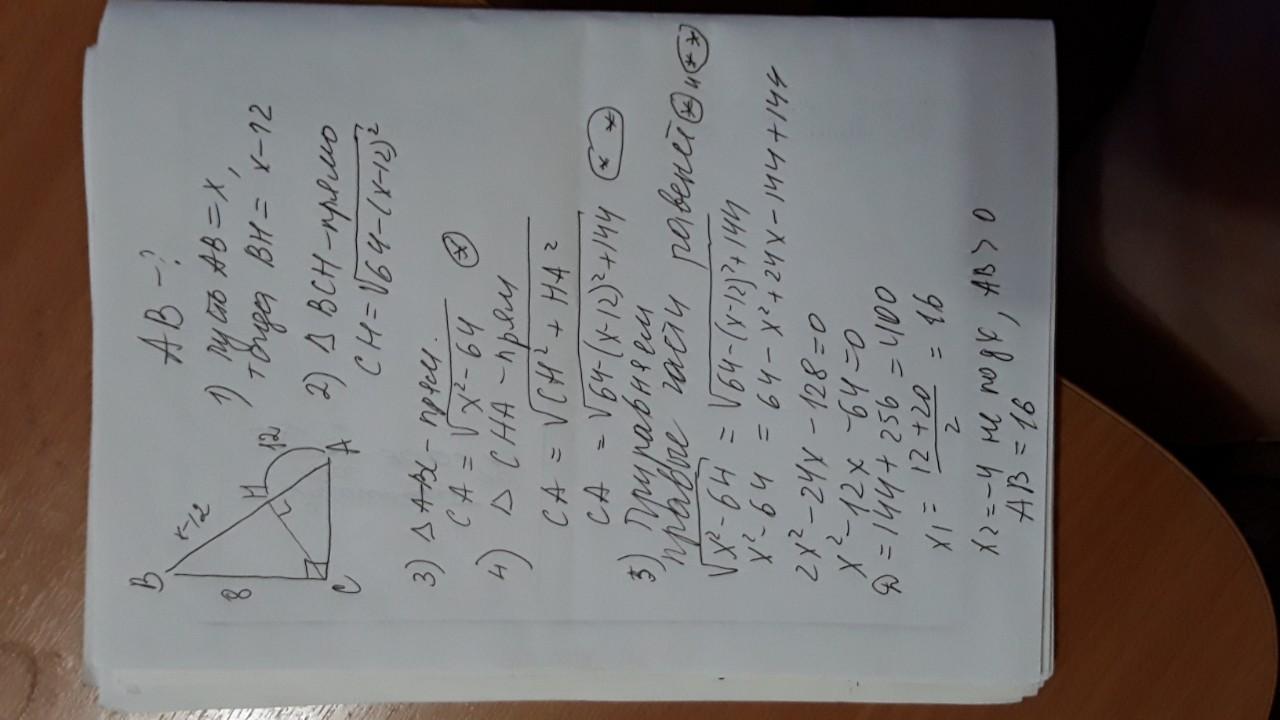 AB - ?
B
x-12
8
H
12
C
A
1) пусть AB = x,
тогда BH = x-12
2) △ BCH - прямо
CH = √64-(x-12)²
3) △ ABC - прям.
CA = √x²-64 (*)
4) △ CHA - прям
CA = √CH² + HA²
CA = √64-(x-12)²+144 (* *)
5) Приравняем
правые части равенств (*) и (* *)
√x²-64 = √64-(x-12)²+144
x²-64 = 64 - x² + 24x - 144 + 144
2x² - 24x - 128 = 0
x² - 12x - 64 = 0
D = 144 + 256 = 400
x1 = 12+20 / 2 = 16
x2 = -4 не подх, AB > 0
AB = 16